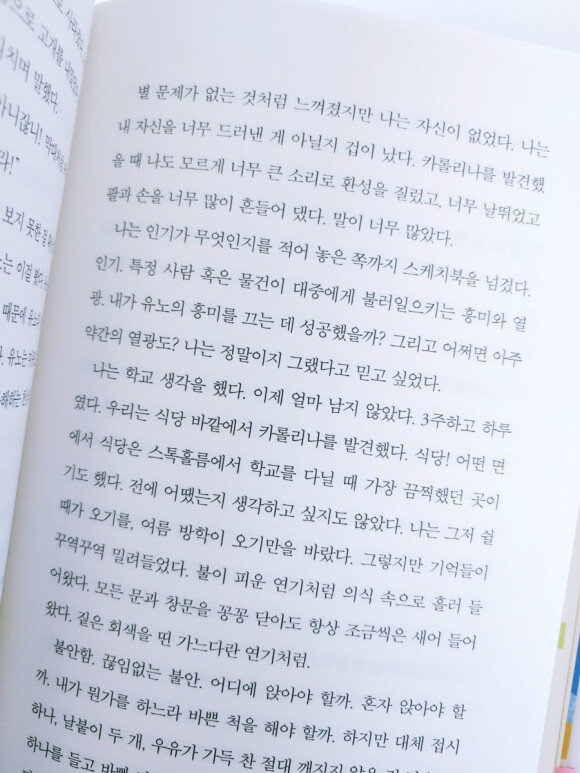 으로 고개를
치며 말했다.
아니잖니!
라!”
보지 못한
때문에
별 문제가 없는 것처럼 느껴졌지만 나는 자신이 없었다. 나는
내 자신을 너무 드러낸 게 아닐지 겁이 났다. 카롤리나를 발견했
을 때 나도 모르게 너무 큰 소리로 환성을 질렀고, 너무 날뛰었고
팔과 손을 너무 많이 흔들어 댔다. 말이 너무 많았다.
나는 인기가 무엇인지를 적어 놓은 쪽까지 스케치북을 넘겼다.
인기. 특정 사람 혹은 물건이 대중에게 불러일으키는 흥미와 열
광. 내가 유노의 흥미를 끄는 데 성공했을까? 그리고 어쩌면 아주
약간의 열광도? 나는 정말이지 그랬다고 믿고 싶었다.
나는 학교 생각을 했다. 이제 얼마 남지 않았다. 3주하고 하루
였다. 우리는 식당 바깥에서 카롤리나를 발견했다. 식당! 어떤 면
에서 식당은 스톡홀름에서 학교를 다닐 때 가장 끔찍했던 곳이
기도 했다. 전에 어땠는지 생각하고 싶지도 않았다. 나는 그저 쉴
때가 오기를, 여름 방학이 오기만을 바랐다. 그렇지만 기억들이
꾸역꾸역 밀려들었다. 불이 피운 연기처럼 의식 속으로 흘러 들
어왔다. 모든 문과 창문을 꽁꽁 닫아도 항상 조금씩은 새어 들어
왔다. 짙은 회색을 띤 가느다란 연기처럼.
불안함. 끊임없는 불안. 어디에 앉아야 할까. 혼자 앉아야 할
까. 내가 뭔가를 하느라 바쁜 척을 해야 할까. 하지만 대체 접시
하나, 날붙이 두 개, 우유가 가득 찬 절대 깨지지 않은
하나를 들고 바쁜